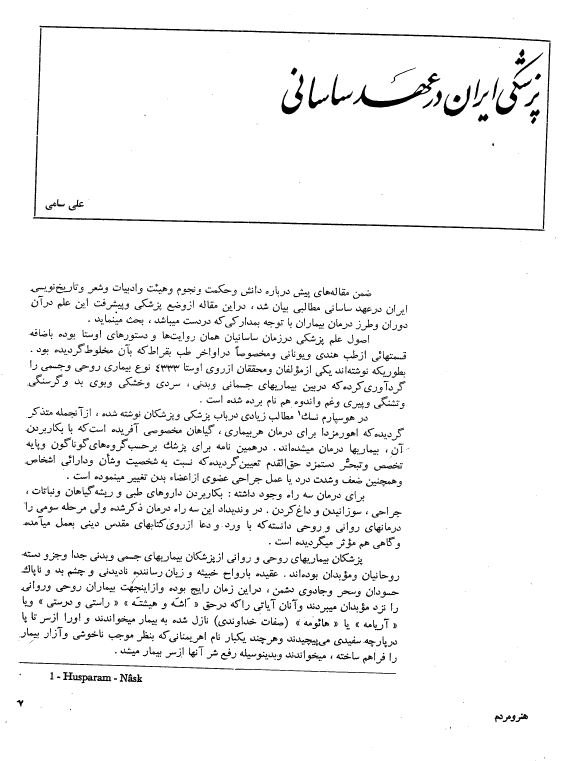 پزشکی ایران در عهد ساسانی
علی سامی
ضمن مقاله‌های پیش درباره دانش وحکمت ونجوم وهیئت وادبیات وشعر وتاریخ‌نویسی
ایران درعهد ساسانی مطالبی بیان شد ، دراین مقاله ازوضع پزشکی وپیشرفت این علم درآن
دوران وطرز درمان بیماران با توجه بمدارکی‌که دردست میباشد ، بحث مینماید .
اصول علم پزشکی درزمان ساسانیان همان روایت‌ها و دستورهای اوستا بوده باضافه
قسمتهائی ازطب هندی ویونانی ومخصوصاً دراواخر طب بقراط‌که بآن مخلوط‌گردیده بود .
بطوریکه نوشته‌اند یکی ازمؤلفان ومحققان ازروی اوستا ۴۳۳۳ نوع بیماری روحی وجسمی را
گردآوری‌کرده‌که دربین بیماریهای جسمانی وبدنی ، سردی وخشکی وبوی بد وگرسنگی
وتشنگی وپیری وغم واندوه هم نام برده شده است .
در هوسپارم نسك۱ مطالب زیادی درباب پزشکی وپزشکان نوشته شده ، ازآنجمله متذکر
گردیده‌که اهورمزدا برای درمان هربیماری ، گیاهان مخصوصی آفریده است‌که با بکاربردن
آن ، بیماریها درمان میشده‌اند. درهمین نامه برای پزشك برحسب‌گروه‌های‌گوناگون وپایه
تخصص وتبحّر دستمزد حق‌القدم تعیین‌گردیده‌که نسبت به شخصیت وشأن ودارائی اشخاص
وهمچنین ضعف وشدت درد یا عمل جراحی عضوی ازاعضاء بدن تغییر مینموده است .
برای درمان سه راه وجود داشته : بکاربردن داروهای طبی و ریشه‌گیاهان ونباتات ،
جراحی ، سوزانیدن و داغ‌کردن . در وندیداد این سه راه درمان ذکرشده ولی مرحله سومی را
درمانهای روانی و روحی دانسته‌که با ورد و دعا ازروی‌کتابهای مقدس دینی بعمل میآمده
وگاهی هم مؤثر میگردیده است .
پزشکان بیماریهای روحی و روانی ازپزشکان بیماریهای جسمی وبدنی جدا وجزو دسته
روحانیان ومؤبدان بوده‌اند. عقیده بارواح خبیثه و زیان رساننده نادیدنی و چشم بد و ناپاك
حسودان وسحر وجادوی دشمن ، دراین زمان رایج بوده وازاینجهت بیماران روحی وروانی
را نزد مؤبدان میبردند وآنان آیاتی راکه درحق « اشه و هیشته » « راستی و درستی » ویا
« آریامه » یا « هائومه » (صفات خداوندی) نازل شده به بیمار میخواندند و اورا ازسر تا پا
درپارچه سفیدی می‌پیچیدند وهرچند یکبار نام اهریمنانی‌که بنظر موجب ناخوشی وآزار بیمار
را فراهم ساخته ، میخواندند وبدینوسیله رفع شر آنها ازسر بیمار میشد .
1 - Husparam - Nâsk
هنرومردم
۷